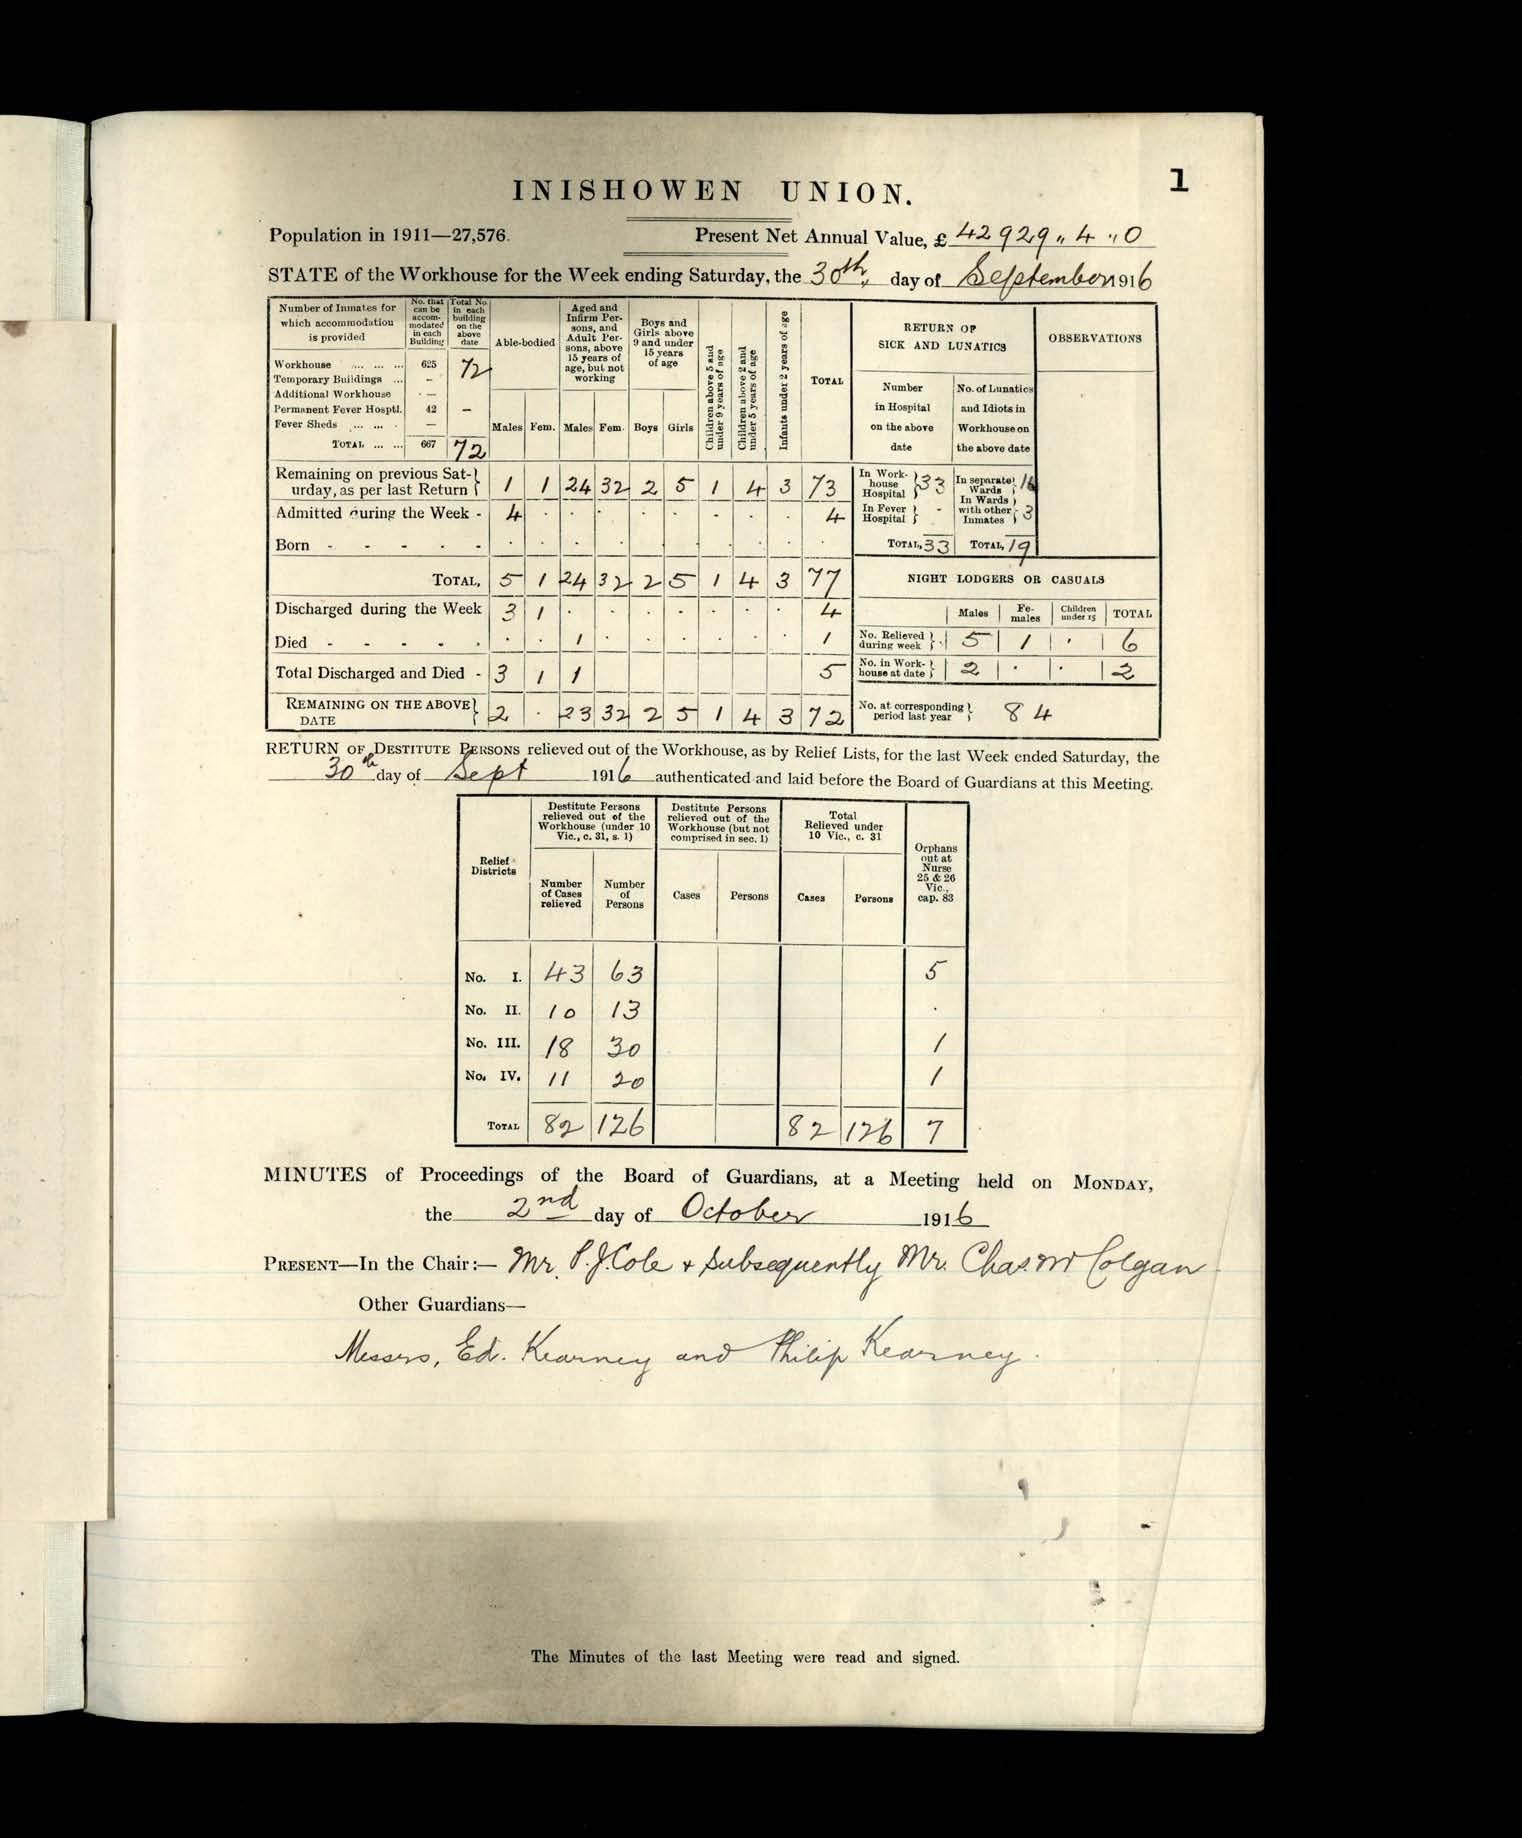 1
INISHOWEN UNION.
Population in 1911—27,576. Present Net Annual Value, £ 42929 „ 4 „ 0
STATE of the Workhouse for the Week ending Saturday, the 30th, day of September 1916
Number of Inmates for which accommodation is provided | No. that can be accommodated in each Building | Total No. in each building on the above date | Able-bodied | Aged and Infirm Persons, and Adult Persons, above 15 years of age, but not working | Boys and Girls above 9 and under 15 years of age | Children above 5 and under 9 years of age | Children above 2 and under 5 years of age | Infants under 2 years of age | TOTAL | RETURN OF SICK AND LUNATICS | OBSERVATIONS
Workhouse ... ... ... 625 72
Temporary Buildings ... –
Additional Workhouse —
Permanent Fever Hosptl. 42 –
Fever Sheds ... ... . —
TOTAL ... ... 667 72
Males | Fem. | Males | Fem. | Boys | Girls
Number in Hospital on the above date | No. of Lunatics and Idiots in Workhouse on the above date
Remaining on previous Saturday, as per last Return } 1 1 24 32 2 5 1 4 3 73
Admitted during the Week - 4 · · · · · · · · 4
Born - - - - - · · · · · · · · · ·
TOTAL, 5 1 24 32 2 5 1 4 3 77
Discharged during the Week 3 1 · · · · · · · 4
Died - - - - - · · 1 · · · · · · 1
Total Discharged and Died - 3 1 1 5
REMAINING ON THE ABOVE DATE } 2 · 23 32 2 5 1 4 3 72
In Workhouse Hospital } 33 In separate Wards } 16
In Fever Hospital } - In Wards with other Inmates } 3
TOTAL, 33 TOTAL, 19
NIGHT LODGERS OR CASUALS
Males | Females | Children under 15 | TOTAL
No. Relieved during week } 5 1 · 6
No. in Workhouse at date } 2 · · 2
No. at corresponding period last year } 84
RETURN OF DESTITUTE PERSONS relieved out of the Workhouse, as by Relief Lists, for the last Week ended Saturday, the
30th day of Sept 1916 authenticated and laid before the Board of Guardians at this Meeting.
Relief Districts | Destitute Persons relieved out of the Workhouse (under 10 Vic., c. 31, s. 1) | Destitute Persons relieved out of the Workhouse (but not comprised in sec. 1) | Total Relieved under 10 Vic., c. 31 | Orphans out at Nurse 25 & 26 Vic., cap. 83
Number of Cases relieved | Number of Persons | Cases | Persons | Cases | Persons
No. I. 43 63 5
No. II. 10 13 ·
No. III. 18 30 1
No. IV. 11 20 1
TOTAL 82 126 82 126 7
MINUTES of Proceedings of the Board of Guardians, at a Meeting held on MONDAY,
the 2nd day of October 1916
PRESENT—In the Chair:— Mr. P.J. Cole & Subsequently Mr. Chas. McColgan
Other Guardians—
Messrs, Ed. Kearney and Philip Kearney.
The Minutes of the last Meeting were read and signed.